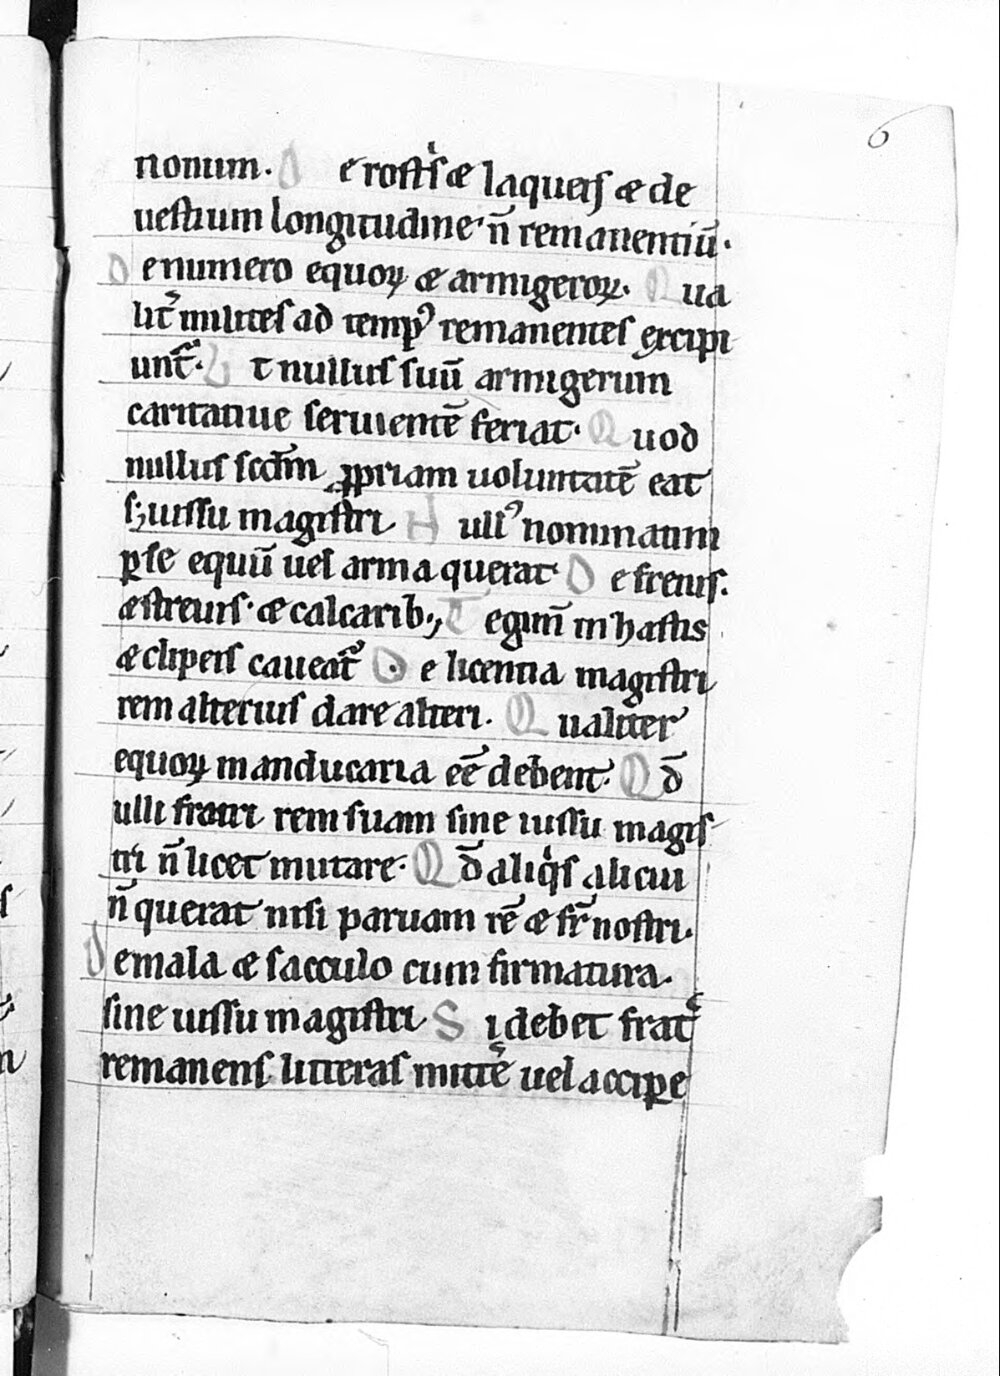 6
nonum. D e rostris ⁊ laqueis ⁊ de
uestium longitudine. n̄ remanentiū.
D e numero equoꝝ ⁊ armigeroꝝ. Q ua
lit̄ milites ad tempꝰ remanentes excipi
unt᷑. U t nullus suū armigerum
caritatiue seruientē feriat. Q uod
nullus scd̄m ꝓpriam uoluntatē eat
sꝫ iussu magistri N ullꝰ nominatim
ꝑ se equū uel arma querat. D e frenis.
⁊ streuis. ⁊ calcarib; T egim̄ in hastis
⁊ clipeis caueat᷑ D e licentia magistri
rem alterius dare alteri. Q ualiter
equoꝝ manducaria eē debent. Q d̄
ulli fratri rem suam sine iussu magis
tri n̄ licet mutare. Q d̄ aliqͥs alicui
n̄ querat nisi paruam rē ⁊ fr̄ nostri.
D e mala ⁊ sacculo cum firmatura.
sine iussu magistri S i debet frat̄
remanens litteras mittē uel acciꝑe